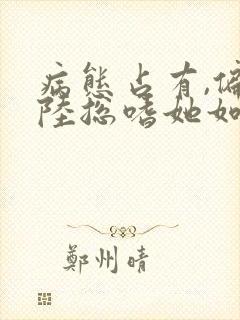 病態占有,偏
陸總嗜她如
鄭州晴